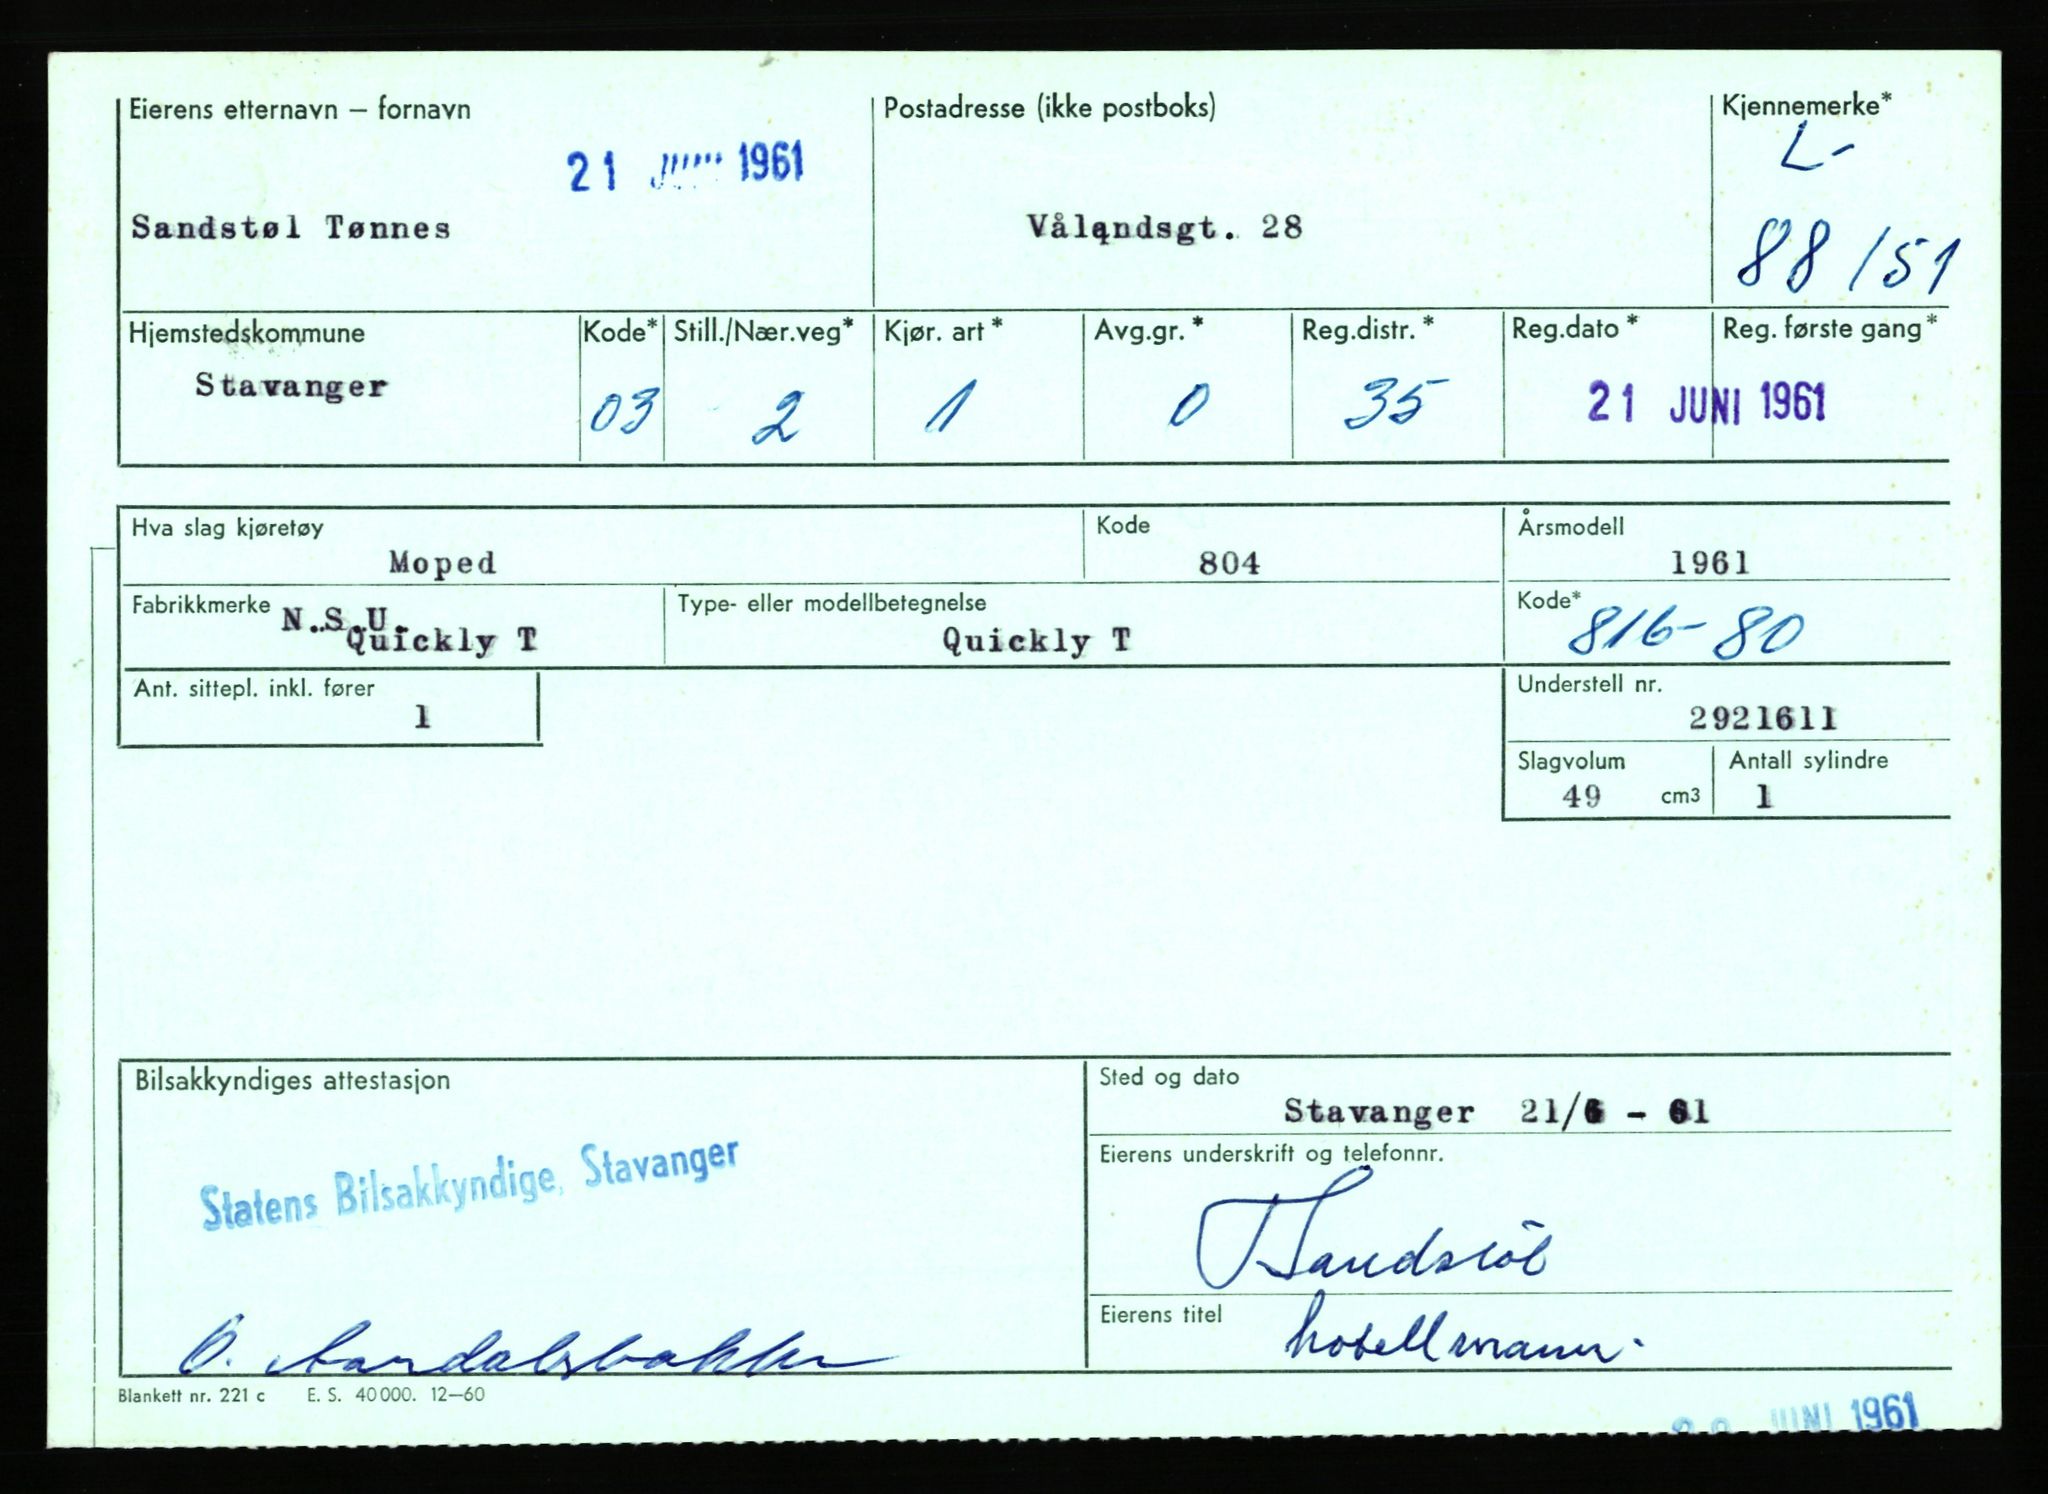 Eierens etternavn – fornavn
Postadresse (ikke postboks)
Kjennemerke*
21 JUNI 1961
L-
Sandstøl Tønnes
Vålandsgt. 28
88151
Hjemstedskommune
Kode*
Still./Nær.veg*
Kjør. art*
Avg.gr.*
Reg.distr.*
Reg.dato*
Reg. første gang*
Stavanger
03
2
1
0
35
21 JUNI 1961
Hva slag kjøretøy
Kode
Årsmodell
Moped
804
1961
Fabrikkmerke
Type- eller modellbetegnelse
Kode*
N.S.U.
Quickly T
Quickly T
816-80
Ant. sittepl. inkl. fører
1
Understell nr.
2921611
Slagvolum
Antall sylindre
49 cm3
1
Bilsakkyndiges attestasjon
Sted og dato
Stavanger 21/6 - 61
Statens Bilsakkyndige, Stavanger
Eierens underskrift og telefonnr.
T Sandstöl
Eierens titel
hotellmann.
Blankett nr. 221 c E. S. 40000. 12–60
JUNI 1961